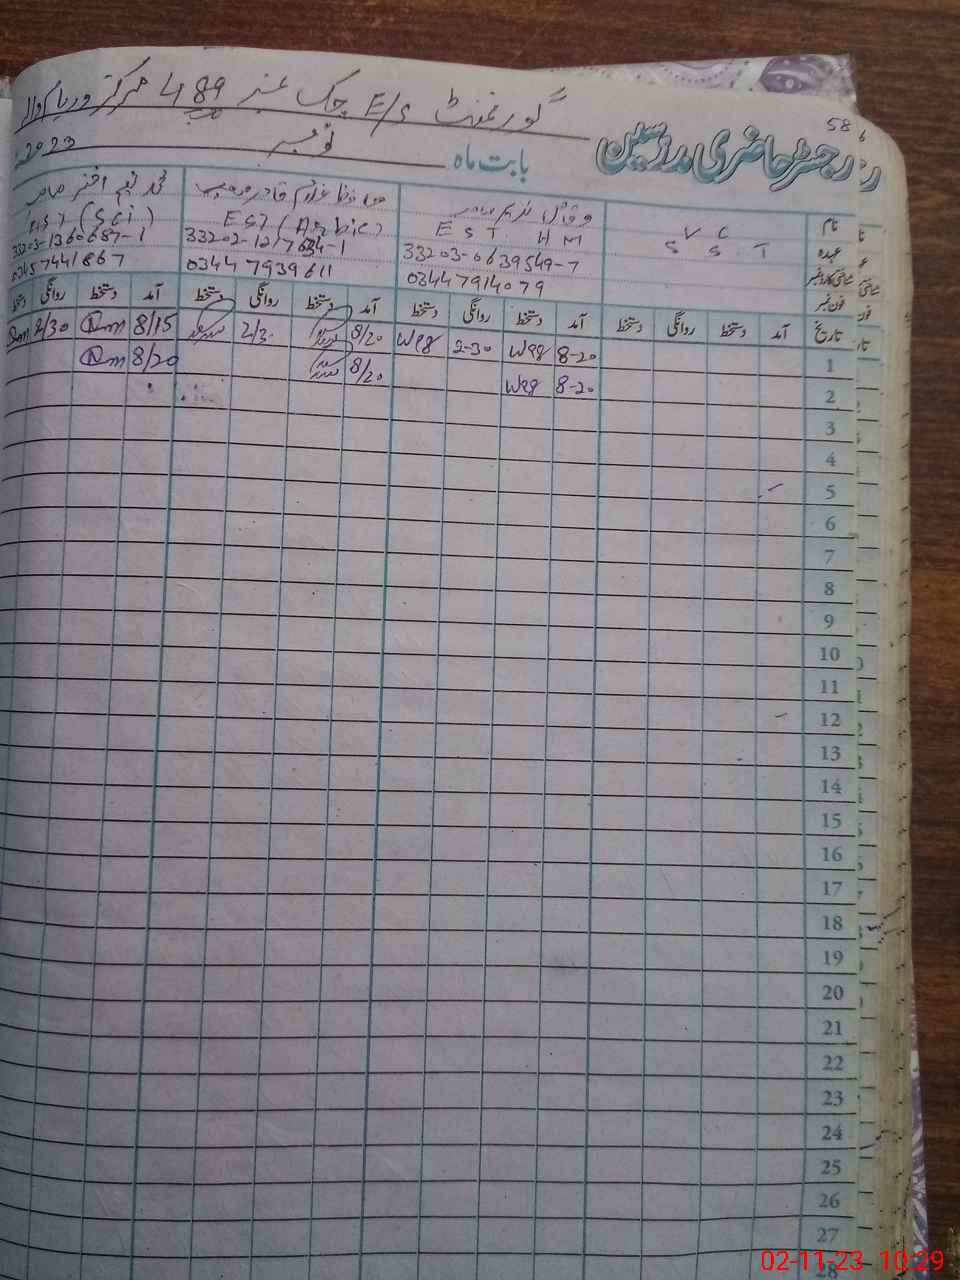 58
گورنمنٹ E/S چک نمبر 489 مرکز وریام والا
رجسٹر حاضری مدرسین
بابت ماہ نومبر 2023
نام V C وقاص ندیم حافظ غلام قادر محمد نعیم اختر
عہدہ S S T E S T H M EST (Arabic) EST (Sci)
شناختی کارڈ نمبر 33203-0639549-7 33202-1217634-1 33203-1360687-1
فون نمبر 03447914079 03447939611 03457441867
تاریخ آمد دستخط روانگی دستخط آمد دستخط روانگی دستخط آمد دستخط روانگی دستخط آمد دستخط روانگی دستخط
1 8-20 Waq 2-30 Waq 8/20 2/30 8/15 2/30
2 8-20 Waq 8/20 8/20
3
4
5
6
7
8
9
10
11
12
13
14
15
16
17
18
19
20
21
22
23
24
25
26
27
28
02-11-23 10:29